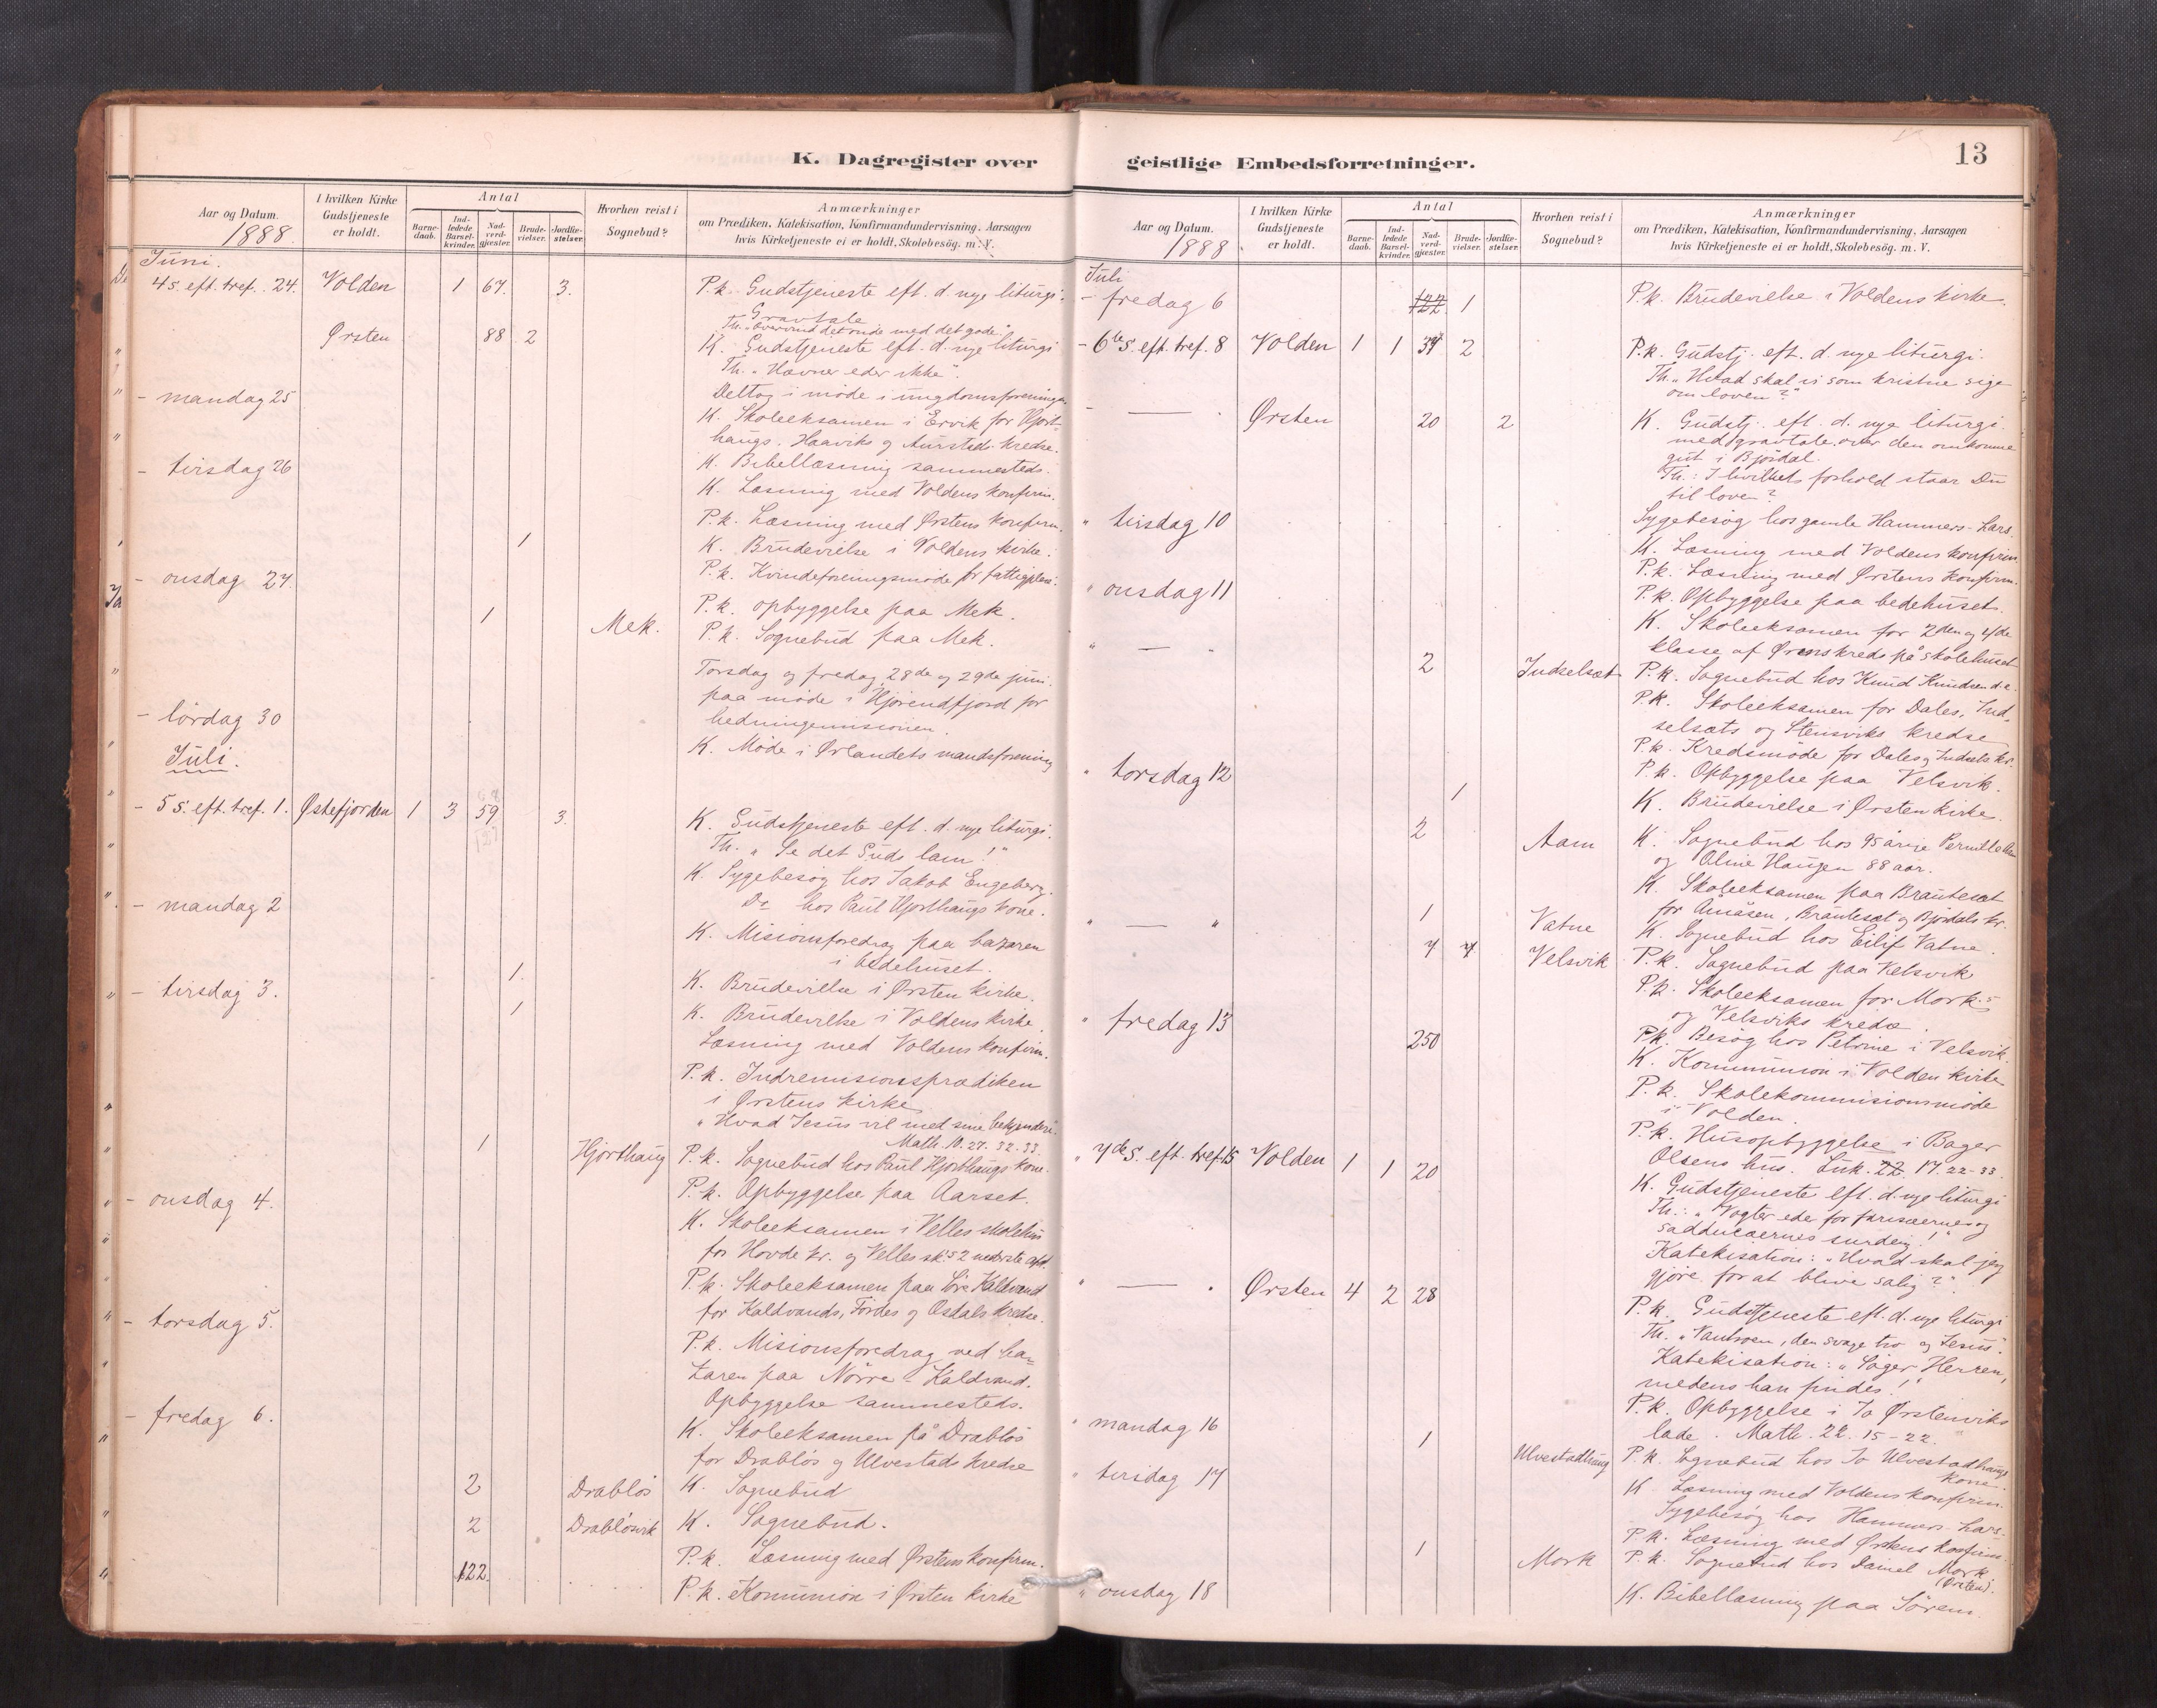 K. Dagregister over
Aar og Datum.
1888.
I hvilken Kirke Gudstjeneste er holdt.
Antal
Barne-daab.
Ind-ledede Barsel-kvinder.
Nad-verd-gjæster.
Brude-vielser.
Jordfæ-stelser.
Hvorhen reist i Sognebud?
Anmærkninger
om Prædiken, Katekisation, Konfirmandundervisning, Aarsagen
hvis Kirketjeneste ei er holdt, Skolebesøg. m. V.
Juni.
4 s. eft. tref. 24. Volden 1 67. 3. P.k. Gudstjeneste eft. d. nye liturgi.
Gravtale
Th. "Overvind det onde med det gode."
Ørsten 88 2 K. Gudstjeneste eft. d. nye liturgi
Th. "Hævner eder ikke".
Deltog i møde i ungdomsforeningen.
- mandag 25 K. Skoleeksamen i Ervik for Hjort-
haugs, Haaviks og Aurstads kredse.
K. Bibellæsning sammesteds.
- tirsdag 26 K. Læsning med Voldens konfirm.
P.k. Læsning med Ørstens konfirm.
1 K. Brudevielse i Voldens kirke.
- onsdag 27. P.k. Kvindeforeningsmøde for fattigpleie.
P.k. opbyggelse paa Mek.
1 Mek. P.k. Sognebud paa Mek.
Torsdag og fredag 28de og 29de juni
paa møde i Hjørendfjord for
hedningemisionen.
- lørdag 30 K. Møde i Ørlandets mandsforening
Juli.
- 5 s. eft. tref. 1. Østefjorden 1 3 59 3. K. Gudstjeneste eft. d. nye liturgi.
Th. "Se det Guds lam!"
K. Sygebesøg hos Jakob Engeberg.
Do hos Paul Hjorthaugs kone.
- mandag 2 K. Misionsforedrag paa bazaren
i bedehuset.
1. K. Brudevielse i Ørsten kirke.
- tirsdag 3. 1 K. Brudevielse i Voldens kirke.
Læsning med Voldens konfirm.
P.k. Indremisionsprædiken
i Ørstens kirke
"Hvad Jesus vil med sine bekjendere".
Math. 10. 27. 32-33.
1 Hjorthaug P.k. Sognebud hos Paul Hjorthaugs kone.
P.k. Opbyggelse paa Aarset.
- onsdag 4. K. Skoleeksamen i Velles skolehus
for Hovde kr. og Velles sk.s 2 nederste afd.
P.k. Skoleeksamen paa Søre Kaldvand
for Kaldvands, Førdes og Osdals kredse.
- torsdag 5. P.k. Misionsforedrag ved ba-
zaren paa Nørre-Kaldvand.
Opbyggelse sammesteds.
- fredag 6. K. Skoleeksamen på Drabløs
for Drabløs og Ulvestads kredse
2 Drabløs K. Sognebud
2 Drabløsvik K. Sognebud.
P.k. Læsning med Ørstens konfirm.
122. P.k. Komunion i Ørsten kirke
geistlige Embedsforretninger.
13
Aar og Datum.
1888.
I hvilken Kirke Gudstjeneste er holdt.
Antal
Barne-daab.
Ind-ledede Barsel-kvinder.
Nad-verd-gjæster.
Brude-vielser.
Jordfæ-stelser.
Hvorhen reist i Sognebud?
Anmærkninger
om Prædiken, Katekisation, Konfirmandundervisning, Aarsagen
hvis Kirketjeneste ei er holdt, Skolebesøg. m. V.
Juli
- fredag 6 122 1 P.k. Brudevielse i Voldens kirke.
- 6te s. eft. tref. 8 Volden 1 1 39 2 P.k. Gudstj. eft. d. nye liturgi.
Th. "Hvad skal vi som kristne sige
om loven?"
Ørsten 20 2 K. Gudstj. eft. d. nye liturgi.
med gravtale over den omkomne
gut i Bjørdal.
Th.: I hvilket forhold staar Du
til love?
Sygebesøg hos gamle Hammers-Lars.
" tirsdag 10 K. Læsning med Voldens konfirm.
P.k. Læsning med Ørstens konfirm.
P.k. Opbyggelse paa bedehuset.
" onsdag 11 K. Skoleeksamen for 2den og 4de
klasse af Ørenskreds på skolehuset
" — " 2 Indselsæt P.k. Sognebud hos Knud Knudsen d.e.
P.k. Skoleeksamen for Dales, Ind-
selsæts og Stensviks kredse
P.k. Kredsmøde for Dales og Indsels. kr.
P.k. Opbyggelse paa Velsvik.
" torsdag 12 1 K. Brudevielse i Ørsten kirke.
2 Aam K. Sognebud hos 95 årige Pernille Aam
og Oline Haugen 88 aar.
K. Skoleeksamen paa Brautesæt
for Amåsen, Brautesæt og Bjørdals kr.
" — " 1 Vatne K. Sognebud hos Eilif Vatne.
7 Velsvik P.k. Sognebud paa Velsvik
P.k. Skoleeksamen for Mork-
og Velsviks kredse.
P.k. Besøg hos Petrine i Velsvik.
" fredag 13 250 K. Kommunion i Volden kirke
P.k. Skolekommisionsmøde
i Volden.
P.k. Husopbyggelse i Bager
Olsens hus. Luk. 22 17. 22-33.
" 7de s. eft. tref. 15 Volden 1 1 20 K. Gudstjeneste eft. d. nye liturgi
Th.: "Vogter eder for farisæernes og
sadducæernes surdeig!"
Katekisation: "Hvad skal jeg
gjøre for at blive salig?"
" — " Ørsten 4 2 28 P.k. Gudstjeneste eft. d. nye liturgi
Th. "Vantroen, den svage tro og Jesus".
Katekisation: "Søger Herren,
medens han findes!"
P.k. Opbyggelse i Jo Ørstenviks
lade. Math. 22. 15-22.
" mandag 16 1 Ulvestadhaug P.k. Sognebud hos Jo Ulvestadhaugs
kone.
" tirsdag 17 K. Læsning med Voldens konfirm.
Sygebesøg hos Hammers-Lars.
P.k. Læsning med Ørstens konfirm.
1 Mork P.k. Sognebud hos Daniel Mork
(Ørsten).
" onsdag 18 K. Bibellæsning paa Sørem.